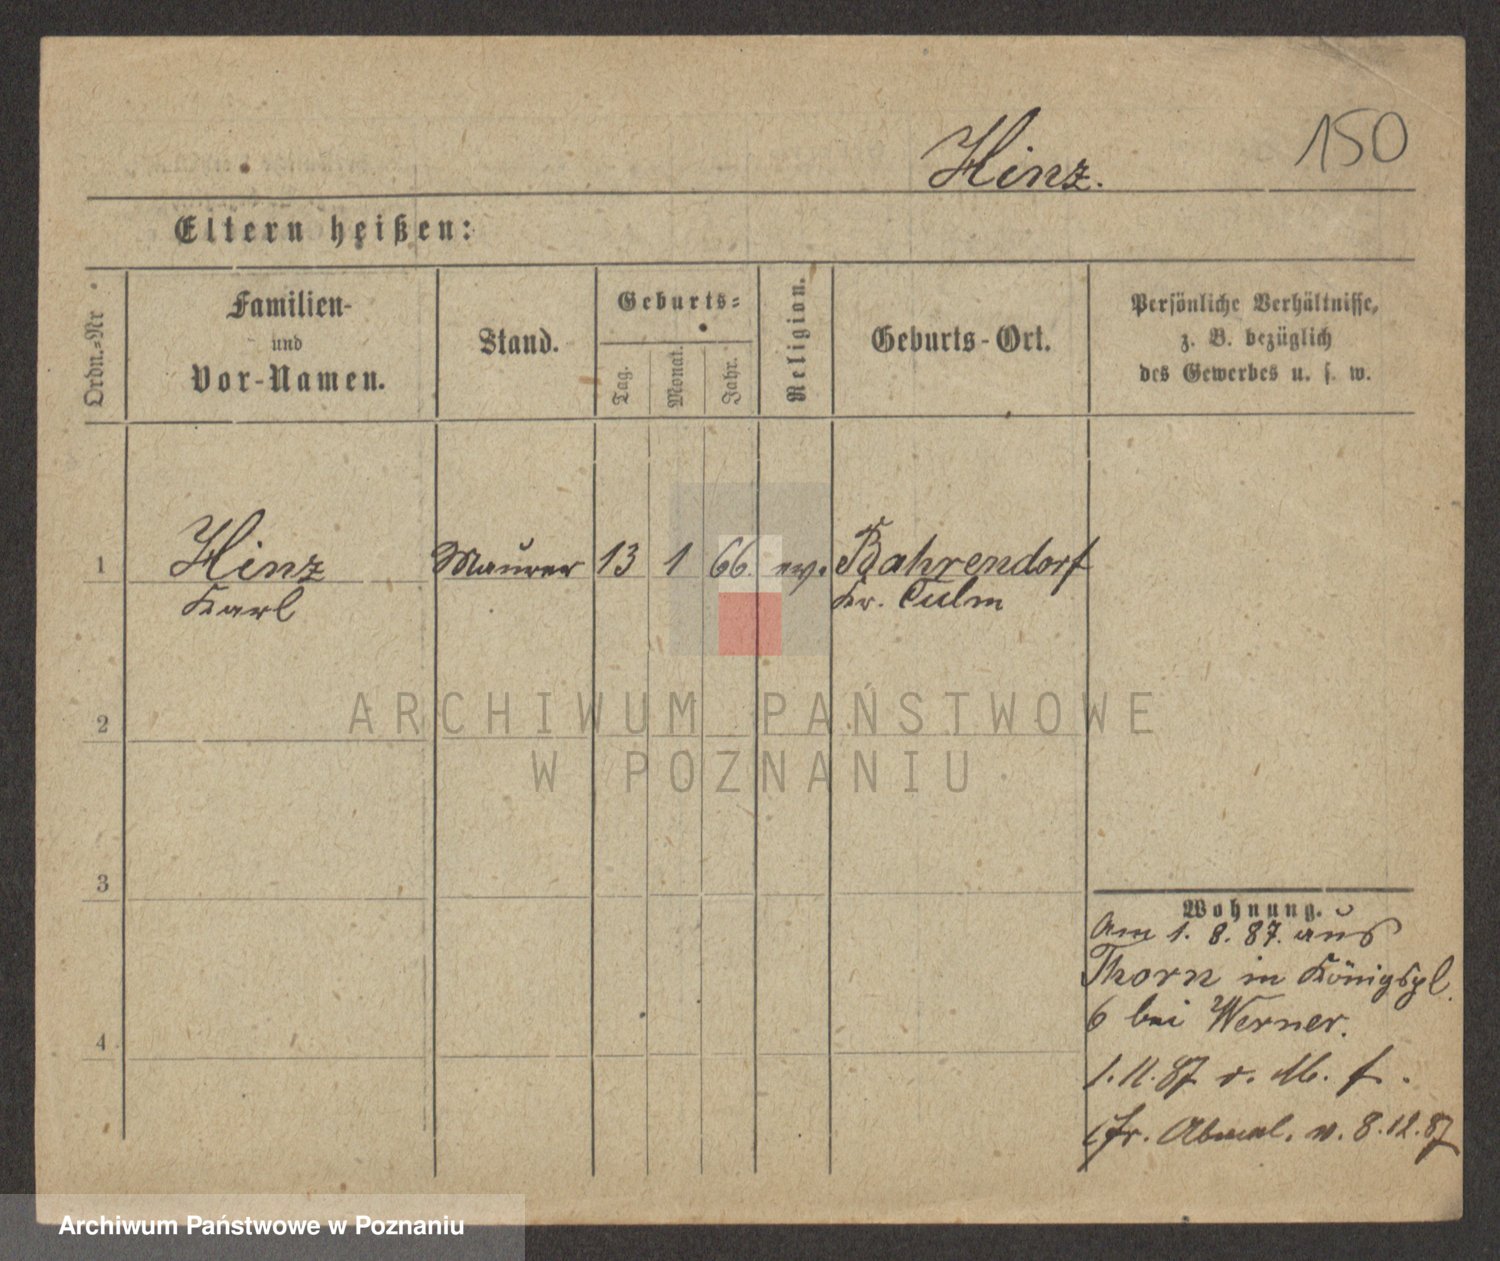 Hinz. 150
Eltern heißen:
Ordn.-Nr.
Familien-
und
Vor-Namen.
Stand.
Geburts-
Tag.
Monat.
Jahr.
Religion.
Geburts-Ort.
Persönliche Verhältnisse,
z. B. bezüglich
des Gewerbes u. s. w.
1 Hinz Maurer 13 1 66. ev. Bahrendorf
Karl Kr. Culm
2
3
4
Wohnung.
Am 1. 8. 87. aus
Thorn in Königspl.
6 bei Werner.
1.11.87 v. M. f.
Fr. v. 8.12.87
ARCHIWUM PAŃSTWOWE
W POZNANIU
Archiwum Państwowe w Poznaniu